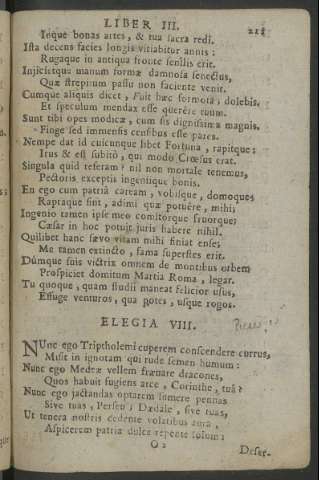 LIBER III. 218
Inque bonas artes, & tua sacra redi.
Ista decens facies longis vitiabitur annis:
Rugaque in antiqua fronte senilis erit.
Injicietque manum formæ damnosa senectus,
Quæ strepitum passu non faciente venit.
Cumque aliquis dicet, Fuit hæc formosa, dolebis,
Et speculum mendax esse querêre tuum.
Sunt tibi opes modicæ, cum sis dignissima magnis.
Finge sed immensis censibus esse pares.
Nempe dat id cuicunque libet Fortuna, rapitque:
Irus & est subitò, qui modo Crœsus erat.
Singula quid referam? nil non mortale tenemus,
Pectoris exceptis ingenique bonis.
En ego cum patriâ caream, vobisque, domoque;
Raptaque sint, adimi quæ potuêre, mihi;
Ingenio tamen ipse meo comitorque fruorque;
Cæsar in hoc potuit juris habere nihil.
Quilibet hanc sævo vitam mihi finiat ense;
Me tamen extincto, fama superstes erit.
Dumque suis victrix omnem de montibus orbem
Prospiciet domitum Martia Roma, legar.
Tu quoque, quam studii maneat felicior usus,
Effuge venturos, qua potes, usque rogos.
ELEGIA VIII.
NUnc ego Triptholemi cuperem conscendere currus,
Misit in ignotam qui rude semen humum:
Nunc ego Medeæ vellem frænare dracones,
Quos habuit fugiens arce, Corinthe, tuâ?
Nunc ego jactandas optarem sumere pennas
Sive tuas, Perseu; Dædale, sive tuas,
Ut tenera nostris cedente volatibus aura,
Aspicerem patriæ dulce repente solum:
O 2 Deser-